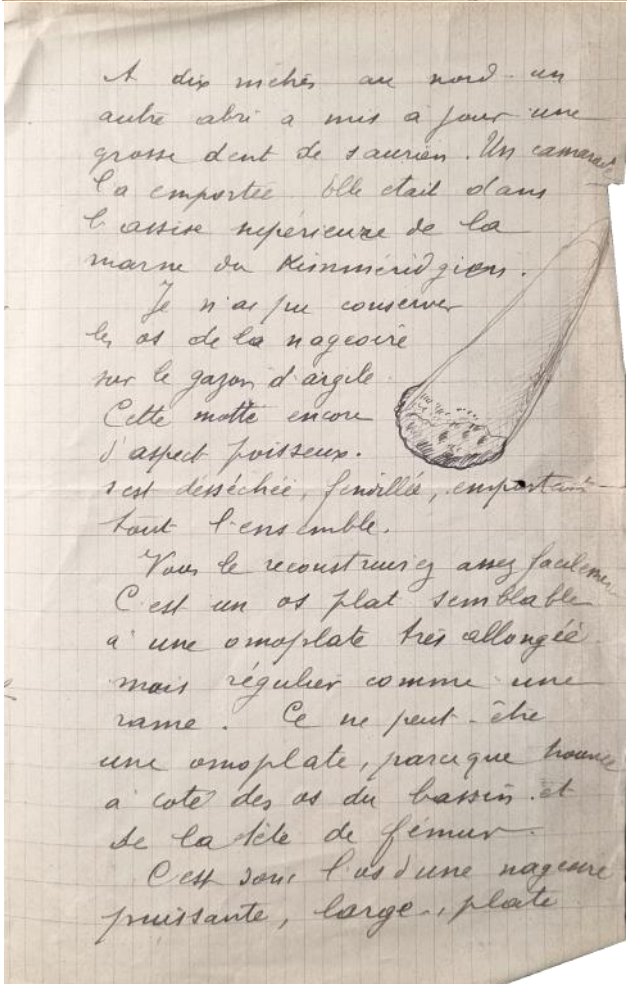 A dix mètres au nord un
autre abri a mis à jour une
grosse dent de saurien. Un camarade
l'a emportée. Elle était dans
l'assise supérieure de la
marne du Kimméridgien.
Je n'ai pu conserver
les os de la nageoire
sur le gazon d'argile.
Cette motte encore
d'aspect poisseux.
s'est desséchée, fendillée, emportant
tout l'ensemble.
Vous le reconstruirez assez facilement
C'est un os plat semblable
à une omoplate très allongée
mais régulier comme une
rame. Ce ne peut-être
une omoplate, parceque trouvé
à coté des os du bassin et
de la tête de fémur.
C'est donc l'os d'une nageoire
puissante, large, plate